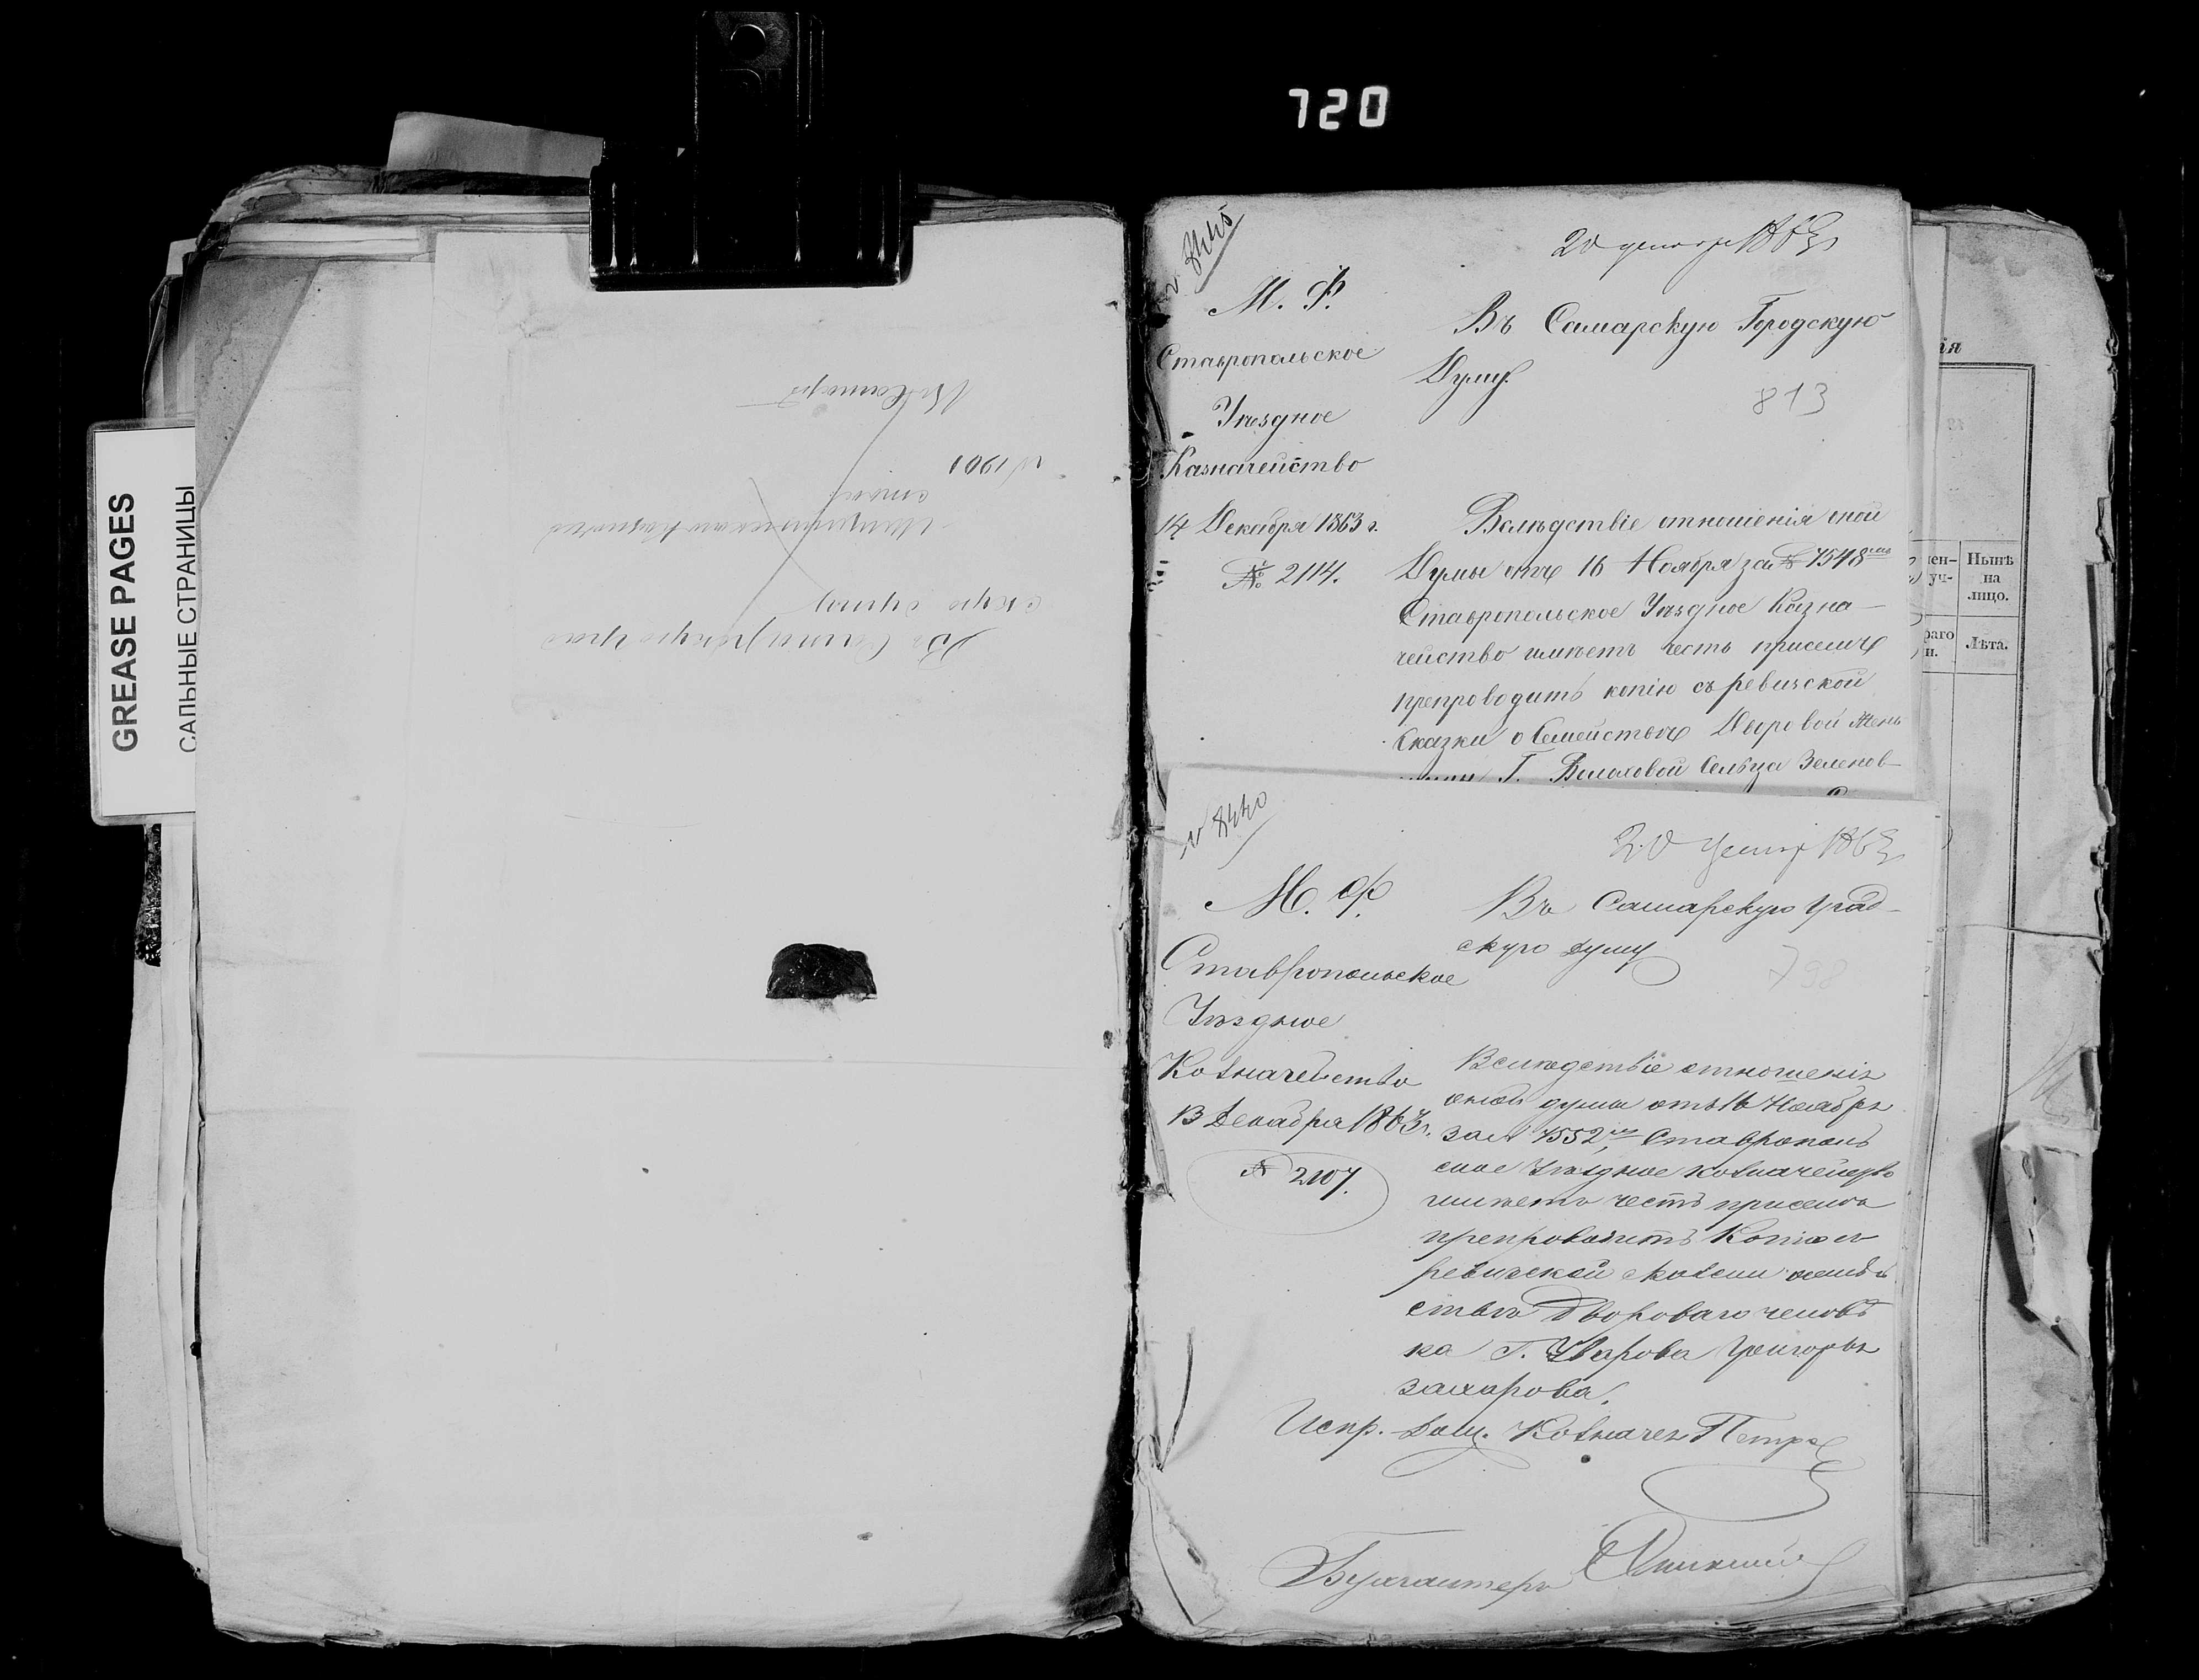 720
GREASE PAGES
САЛЬНЫЕ СТРАНИЦЫ
Въ Самарскую град
скую думу
№ 1901
№ 8445
20 декабр 1863
М. Ф.
Ставропольское
Уѣздное
Казначейство
14 Декабря 1863 г.
№ 2114.
Въ Самарскую Городскую
Думу.
813
Вслѣдствіе отношенія оной
Думы отъ 16 Ноября за № 7548
Ставропольское Уѣздное Казна-
чейство имѣетъ честь присемъ
препроводить копію съ ревизской
Сказки о Семействѣ Дворовой жен
Г. Сельца Зеленов-
№ 8440
20 декабр 1863
М. Ф.
Ставропольское
Уѣздное
Казначейство
13 Декабря 1863 г.
№ 2107.
Въ Самарскую град-
скую думу
798
Вслѣдствіе отношенія
оной думы отъ 16 Ноября
за № 7552, Ставрополь
ское Уѣздное казначейство
имѣетъ честь присемъ
препроводить Копію съ
ревизской скаски о семѣй
ствѣ дворовагo человѣ
ка Г. Уварова Григорья
захарова.
Испр. Долж. Казначея
Бухгалтеръ
ія
мен-
уч-
Нынѣ
на
лицо.
раго
н.
Лѣта.